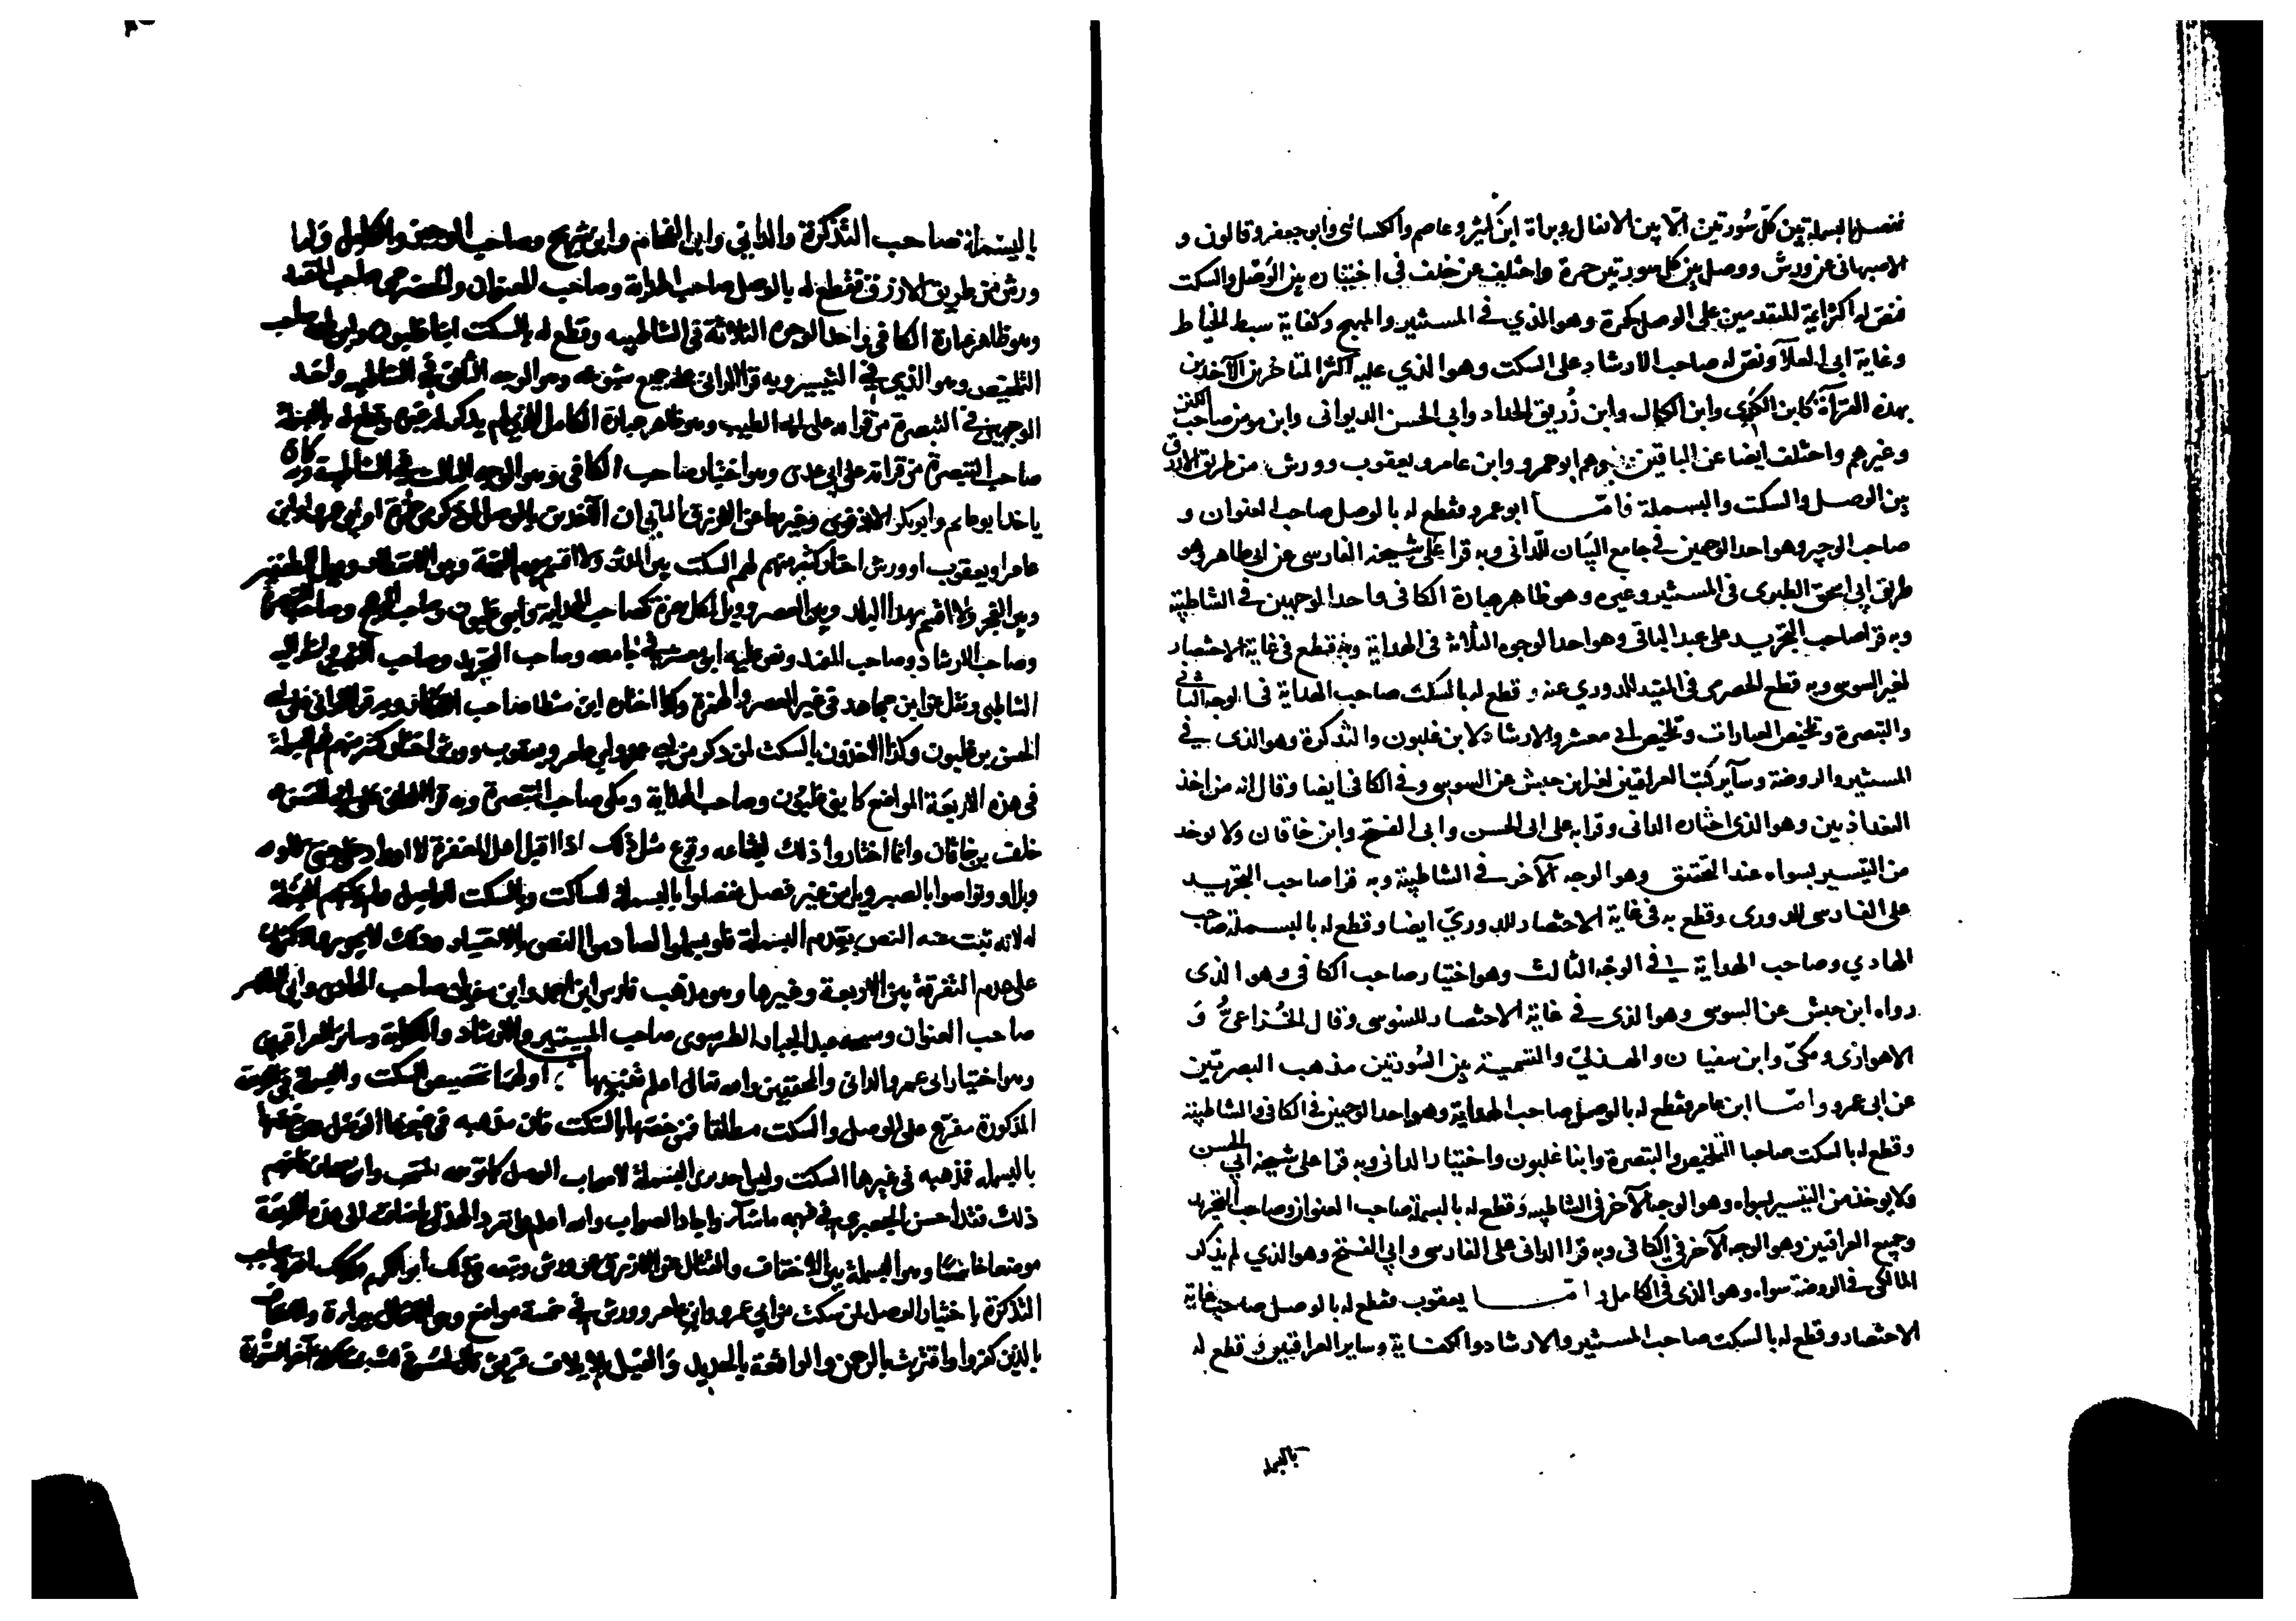 ففصل بالبسملة بين كل سورتين الا بين الانفال وبراة ابن كثير وعاصم والكسائي وابو جعفر وقالون و
الاصبهاني عن ورش ووصل بين كل سورتين حمزة واختلف عن خلف في اختياره بين الوصل والسكت
فنص له اكثر ايمة المتقدمين على الوصل كحمزة وهو الذي في المستنير والمبهج وكفاية سبط الخياط
وغاية ابي العلآ ونص له صاحب الارشاد على السكت وهو الذي عليه اكثر المتاخرين الآخذين
بهذه القرآة كابن الكدى وابن الكال وابن زُريق الحداد وابي الحسن الديواني وابن مومن صاحب الكنز
وغيرهم واختلف ايضا عن الباقين وهم ابو عمرو وابن عامر ويعقوب وورش من طريق الازرق
بين الوصل والسكت والبسملة فامّا ابو عمرو فقطع له بالوصل صاحب العنوان و
صاحب الوجيز وهو احد الوجهين في جامع البيان للداني وبه قرا على شيخه الفارسي عن ابي طاهر وهو
طريق ابي اسحق الطبري في المستنير وغيره وهو ظاهر عبارة الكافي واحد الوجهين في الشاطبية
وبه قرا صاحب التجريد على عبد الباقي وهو احد الوجوه الثلاثة في الهداية وبه قطع في غاية الاختصار
لغير السوسي وبه قطع الحضرمي في المفيد للدوري عنه وقطع له بالسكت صاحب الهداية في الوجه الثاني
والتبصرة وتلخيص العبارات وتلخيص ابي معشر والارشاد لابن غلبون والتذكرة وهو الذي في
المستنير والروضة وسآير كتب العراقيين لغير ابن حبش عن السوسي وفي الكافي ايضا وقال انه من اخذ
البغداذيين وهو الذي اختاره الداني وقرا به على ابي الحسن وابي الفتح وابن خاقان ولا يوخذ
من التيسير بسواه عند التحقيق وهو الوجه الآخر في الشاطبية وبه قرا صاحب التجريد
على الفارسي للدوري وقطع به في غاية الاختصار للدوري ايضا وقطع له بالبسملة صاحب
الهادي وصاحب الهداية في الوجه الثالث وهو اختيار صاحب الكافي وهو الذي
رواه ابن حبش عن السوسي وهو الذي في غاية الاختصار للسوسي وقال الخزاعي و
الاهوازي ومكي وابن سفيان والهذلي والتسمية بين السورتين مذهب البصريين
عن ابي عمرو وامّا ابن عامر فقطع له بالوصل صاحب الهداية وهو احد الوجهين في الكافي والشاطبية
وقطع له بالسكت صاحبا التلخيص والتبصرة وابنا غلبون واختيار الداني وبه قرا على شيخه ابي الحسن
ولا يوخذ من التيسير بسواه وهو الوجه الآخر في الشاطبية وقطع له بالبسملة صاحب العنوان وصاحب التجريد
وجميع العراقيين وهو الوجه الآخر في الكافي وبه قرا الداني على الفارسي وابي الفتح وهو الذي لم يذكر
المالكي في الروضة سواه وهو الذي في الكامل وامّا يعقوب فقطع له بالوصل صاحب غاية
الاختصار وقطع له بالسكت صاحب المستنير والارشاد والكفاية وساير العراقيين وقطع له
بالبسملة
بالبسملة صاحب التذكرة والداني وابن الفحام وابن شريح وصاحب الوجيز والكامل واما
ورش من طريق الازرق فقطع له بالوصل صاحب الهداية وصاحب العنوان والحضرمي صاحب المفيد
وهو ظاهر عبارة الكافي واحد الوجوه الثلاثة في الشاطبية وقطع له بالسكت ابنا غلبون وابن بليمة صاحب
التلخيص وهو الذي في التيسير وبه قرا الداني على جميع شيوخه وهو الوجه الثاني في الشاطبية واحد
الوجهين في التبصرة من قراءته على ابي الطيب وهو ظاهر عبارة الكامل الذي لم يذكر له غيره وقطع له بالبسملة
صاحب التبصرة من قراته على ابي عدي وهو اختيار صاحب الكافي وهو الوجه الثالث في الشاطبية وبه كان
ياخذ ابو غانم وابو بكر الاذفوي وغيرهما عن الازرق الثاني ان الآخذين بالوصل لمن ذكر من حمزة او ابي عمرو او ابن
عامر او يعقوب او ورش اختار كثير منهم لهم السكت بين المدثر ولا اقسم بيوم القيمة وبين الانفطار وويل للمطففين
وبين الفجر ولا اقسم بهذا البلد وبين العصر وويل لكل همزة كصاحب الهداية وابني غلبون وصاحب المبهج وصاحب التبصرة
وصاحب الارشاد وصاحب المفيد ونص عليه ابو معشر في جامعه وصاحب التجريد وصاحب التيسير واشار اليه
الشاطبي ونقل عن ابن مجاهد في غير العصر والهمزة وكذا اختاره ابن شيطا صاحب التذكار وبه قرا الداني على ابي
الحسن بن غلبون وكذا الآخذون بالسكت لمن ذكر من ابي عمرو وابن عامر ويعقوب وورش اختار كثير منهم لهم البسملة
في هذه الاربعة المواضع كابني غلبون وصاحب الهداية ومكي صاحب التبصرة وبه قرا الداني على ابي الحسن و
خلف بن خاقان وانما اختاروا ذلك لبشاعة وقوع مثل ذلك اذا قيل اهل المغفرة لا او ادخلي جنتي لا و
وبلا او وتواصوا بالصبر ويل من غير فصل ففصلوا بالبسملة للساكت وبالسكت للواصل ولم يمكنهم البسملة
له لانه ثبت عنه النص بعدم البسملة فلو بسملوا لصادموا النص بالاختيار وذلك لا يجوز والاكثرون
على عدم التفرقة بين الاربعة وغيرها وهو مذهب فارس ابن احمد وابن سفيان صاحب الهادي وابي الطاهر
صاحب العنوان وشيخه عبد الجبار الطرسوسي وصاحب المستنير والارشاد والكفاية وساير العراقيين
وهو اختيار ابي عمرو الداني والمحققين والله تعالى اعلم تنبيهات اولها تخصيص السكت والبسملة في الاربعة
المذكورة مفرّع على الوصل والسكت مطلقا فمن خصّها بالسكت فان مذهبه في غيرها الوصل ومن خصها
بالبسملة فمذهبه في غيرها السكت وليس احد يرى البسملة لاصحاب الوصل كما توهمه المنتجب وابن بصخان فافهم
ذلك فقد احسن الجعبري في فهمه ما شآء واجاد الصواب والله اعلم وانفرد الهذلي باضافته الى هذه الاربعة
موضعا خامسا وهو البسملة بين الاحقاف والقتال عن الازرق عن ورش وتبعه في ذلك ابو الكرم وكذلك انفرد صاحب
التذكرة باختيار الوصل لمن سكت من ابي عمرو وابن عامر وورش في خمسة مواضع وهي الانفال ببراءة والاحقاف
بالذين كفروا واقتربت بالرحمن والواقعة بالحديد والفيل لايلاف قريش قال لحسن ذلك بمشاكلة آخر السورة